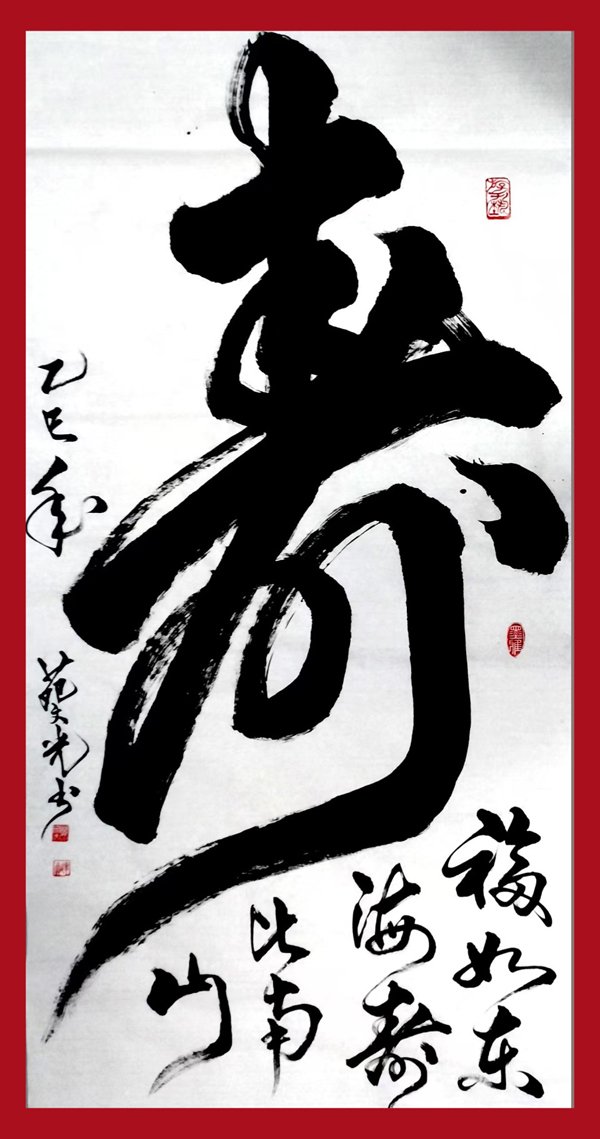 寿
福如东
海寿
比南
山
乙巳年
葵光书